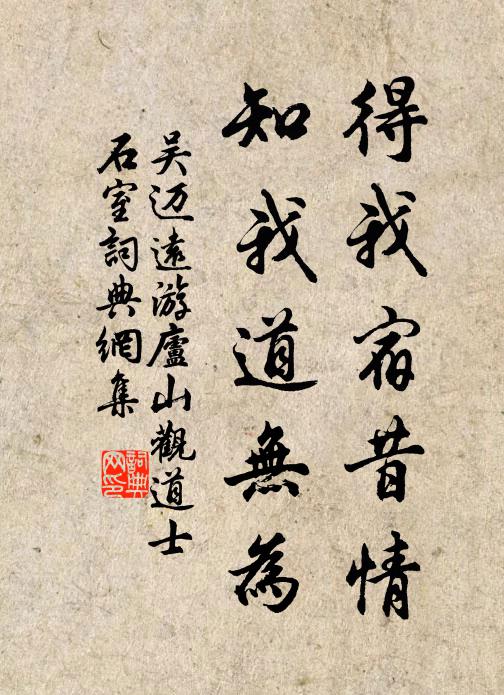 得我宿昔情
知我道無為
吴迈遠游廬山觀道士
石室詞典網集
詞典網印